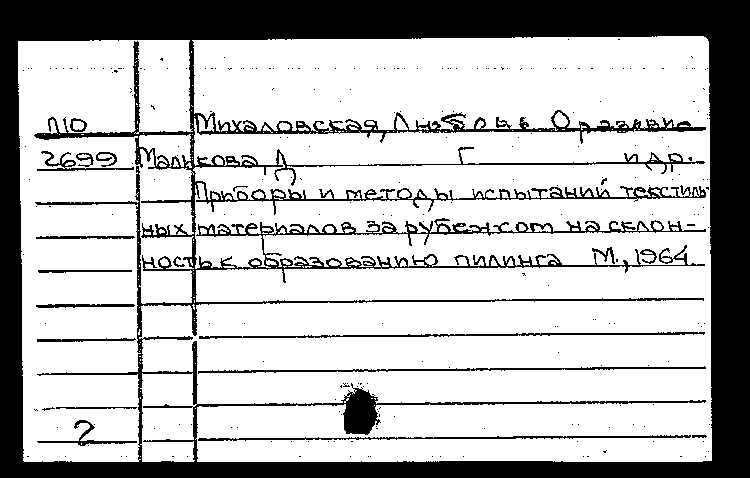 П10 Михаловская, Любовь
2699 Малькова, Л Г и др.
Приборы и методы испытаний текстиль
ных материалов за рубежом на склон-
ность к образованию пилинга М., 1964.
2